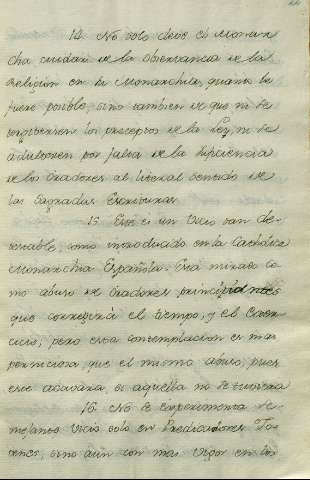 14 No solo debe el Monar
cha cuidar de la observancia de la
Religion en la Monarchia, quanto le
fuere posible, sino tambien de que ni se
los preceptos de la Ley, ni se
adulteren por falta de la suficiencia
de los Oradores al literal sentido de
las Sagradas Escrituras
15 Este es un Vicio tan de-
testable, como introducido en la Catholica
Monarchia Española. Está mirado co
mo abuso de Oradores principiantes
que corregirá el tiempo, y el Exer-
cicio; pero esta contemplacion es mas
perniciosa, que el mismo abuso, pues
este acabára, si aquella no le
16 No se experimenta se-
mejante Vicio solo en Predicadores Jo-
venes, sino aun con mas vigor en los